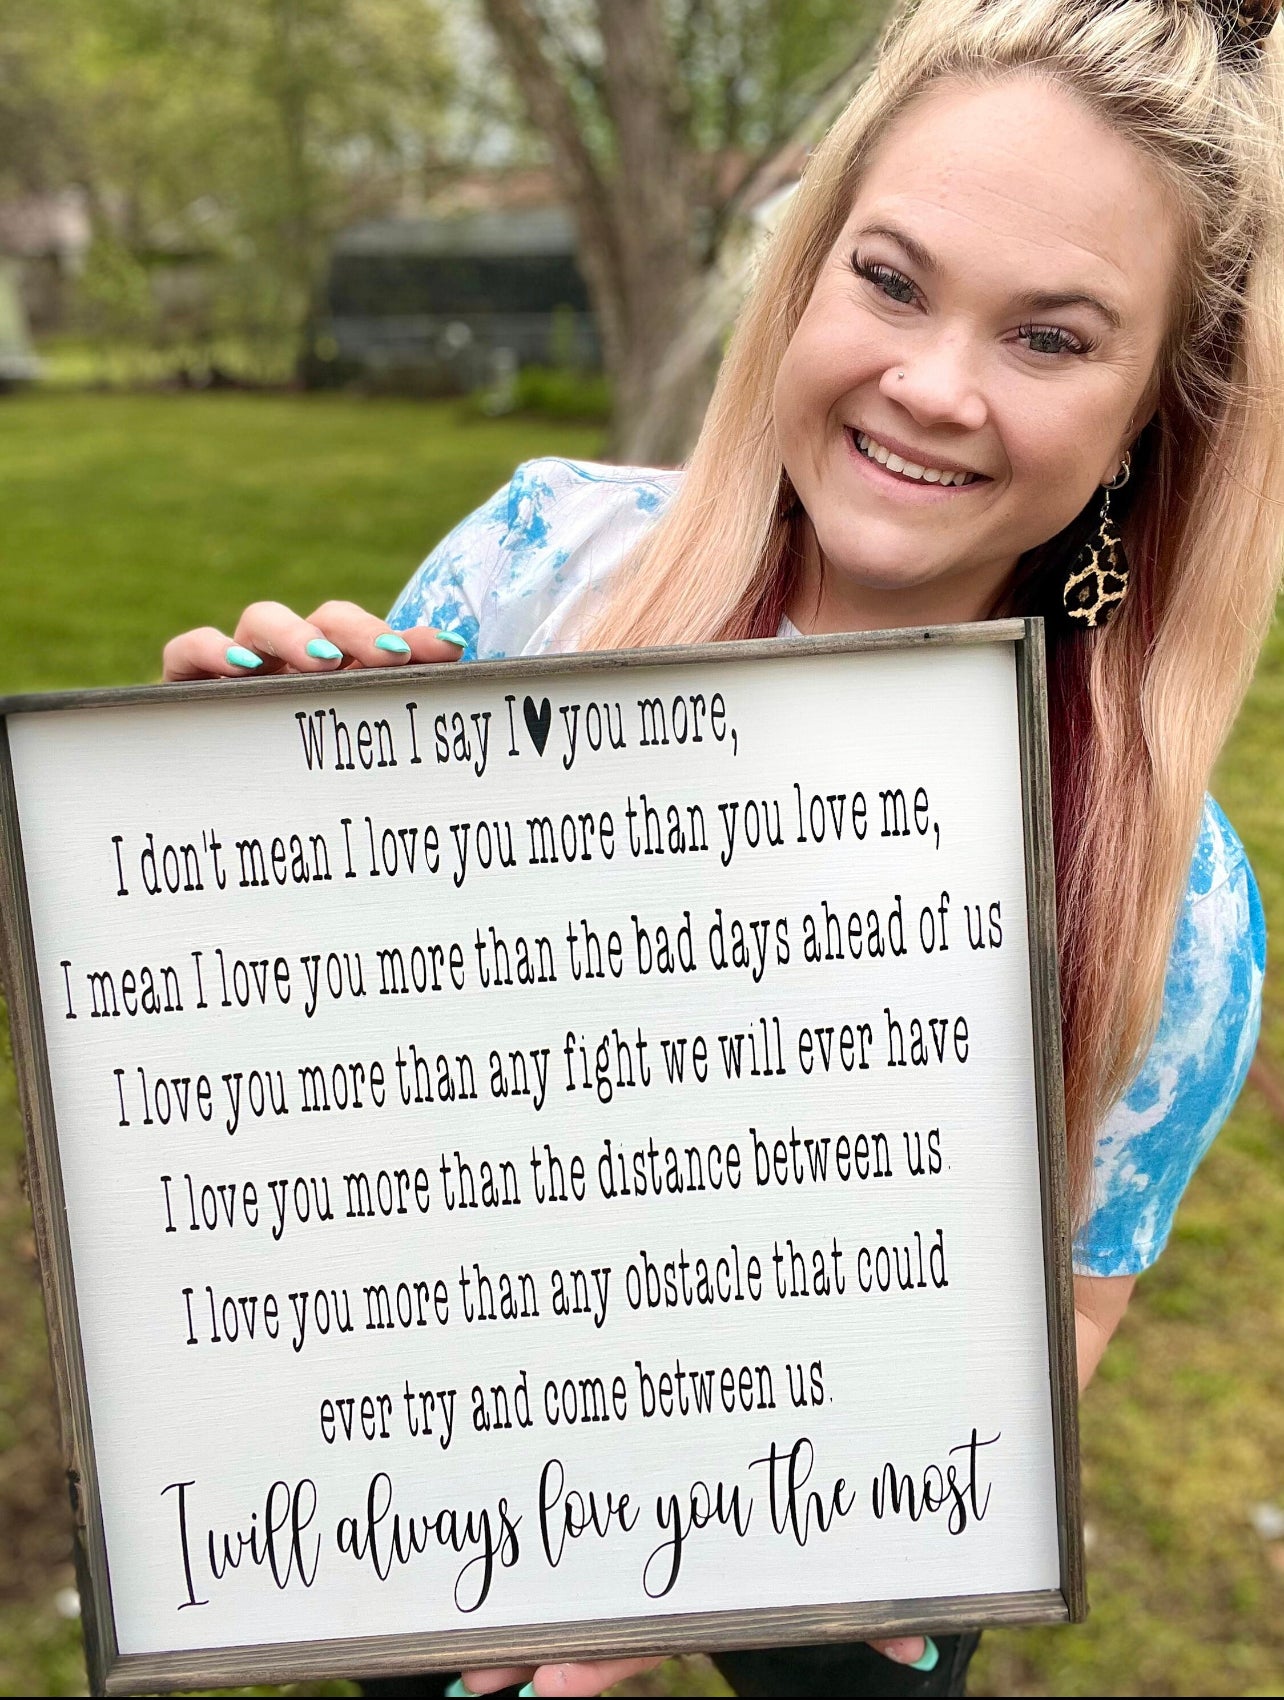 When I say I♥you more,
I don't mean I love you more than you love me,
I mean I love you more than the bad days ahead of us
I love you more than any fight we will ever have
I love you more than the distance between us.
I love you more than any obstacle that could
ever try and come between us.
I will always love you the most